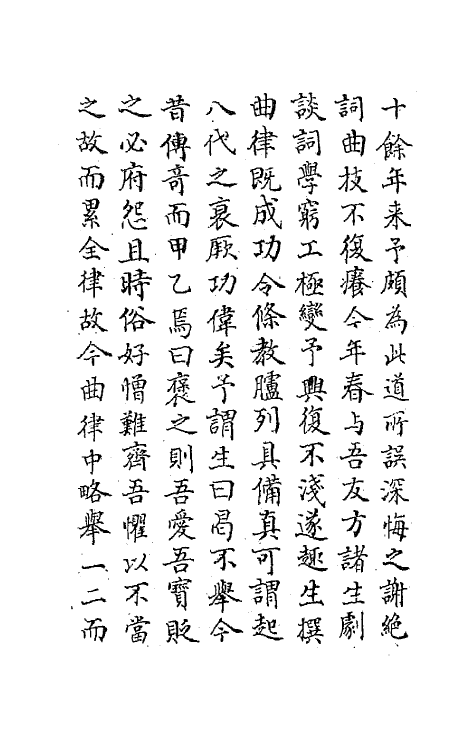 十餘年来予頗為此道所誤深悔之謝絶
詞曲技不復癢今年春与吾友方諸生劇
談詞學窮工極變予興復不淺遂趣生撰
曲律既成功令條教臚列具備真可謂起
八代之衰厥功偉矣予謂生曰曷不舉今
昔傳竒而甲乙焉曰襃之則吾愛吾寳貶
之必府怨且時俗好憎難齊吾懼以不當
之故而累全律故今曲律中略舉一二而